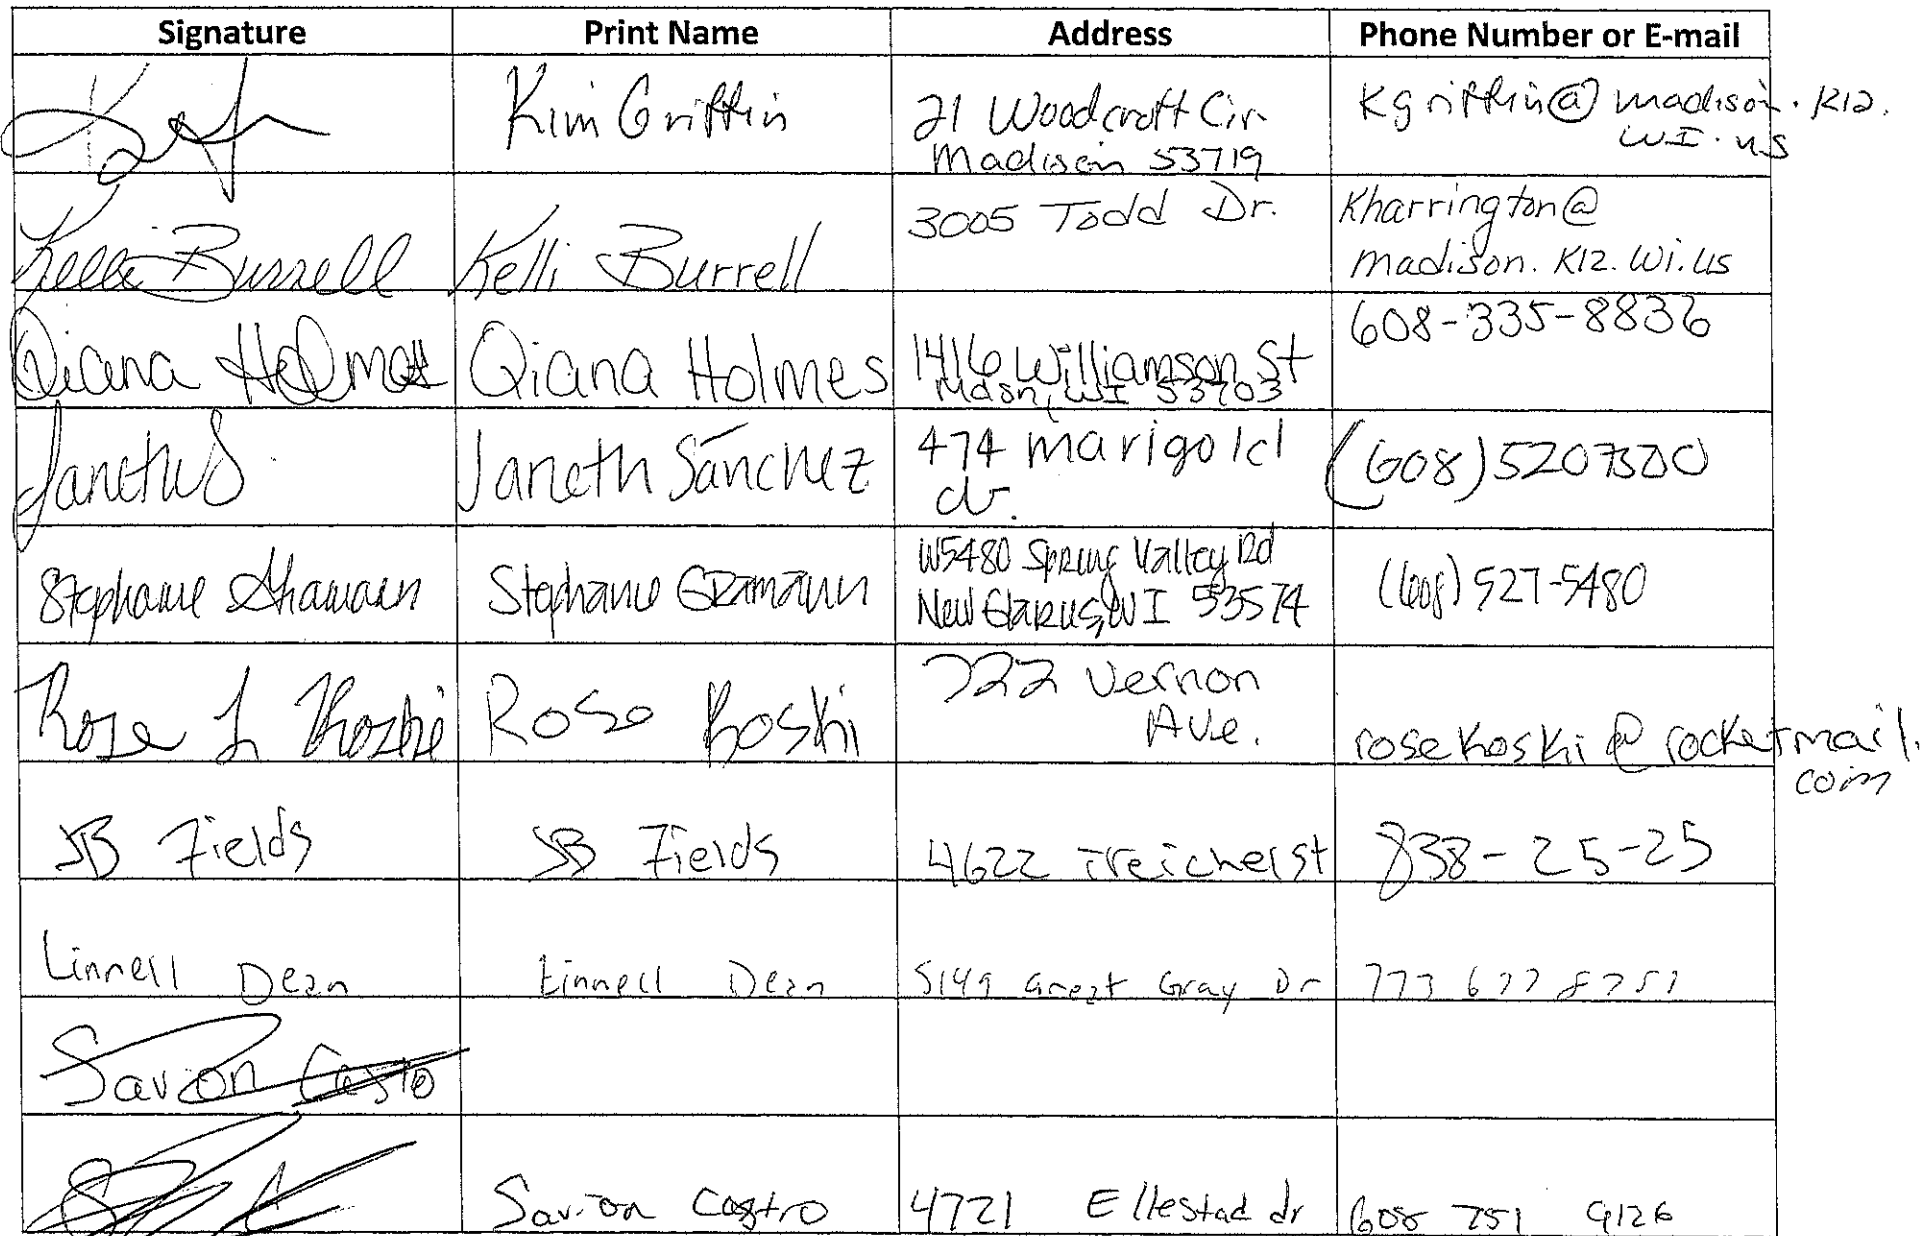 Signature Print Name Address Phone Number or E-mail
Kim Griffin 21 Woodcroft Cir Kgriffin@madison.k12.
Madison 53719 WI.us
Kelli Burrell Kelli Burrell 3005 Todd Dr. Kharrington@
madison.k12.wi.us
Qiana Holmes Qiana Holmes 1416 Williamson St 608-335-8836
Madsn, WI 53703
Janeth S Janeth Sánchez 474 marigold (608)5207500
dr.
Stephanie Gramann Stephanie Gramann W5480 Spring Valley Rd (608) 527-5480
New Glarus, WI 53574
Rose L Koski Rose Koski 722 Vernon
Ave. rosekoski@rocketmail.
com
JB Fields JB Fields 4622 Treichel st 838-25-25
Linnell Dean Linnell Dean 5149 Great Gray Dr 773
Savion Castro
Savion Castro 4721 Ellestad dr 608 751 9126